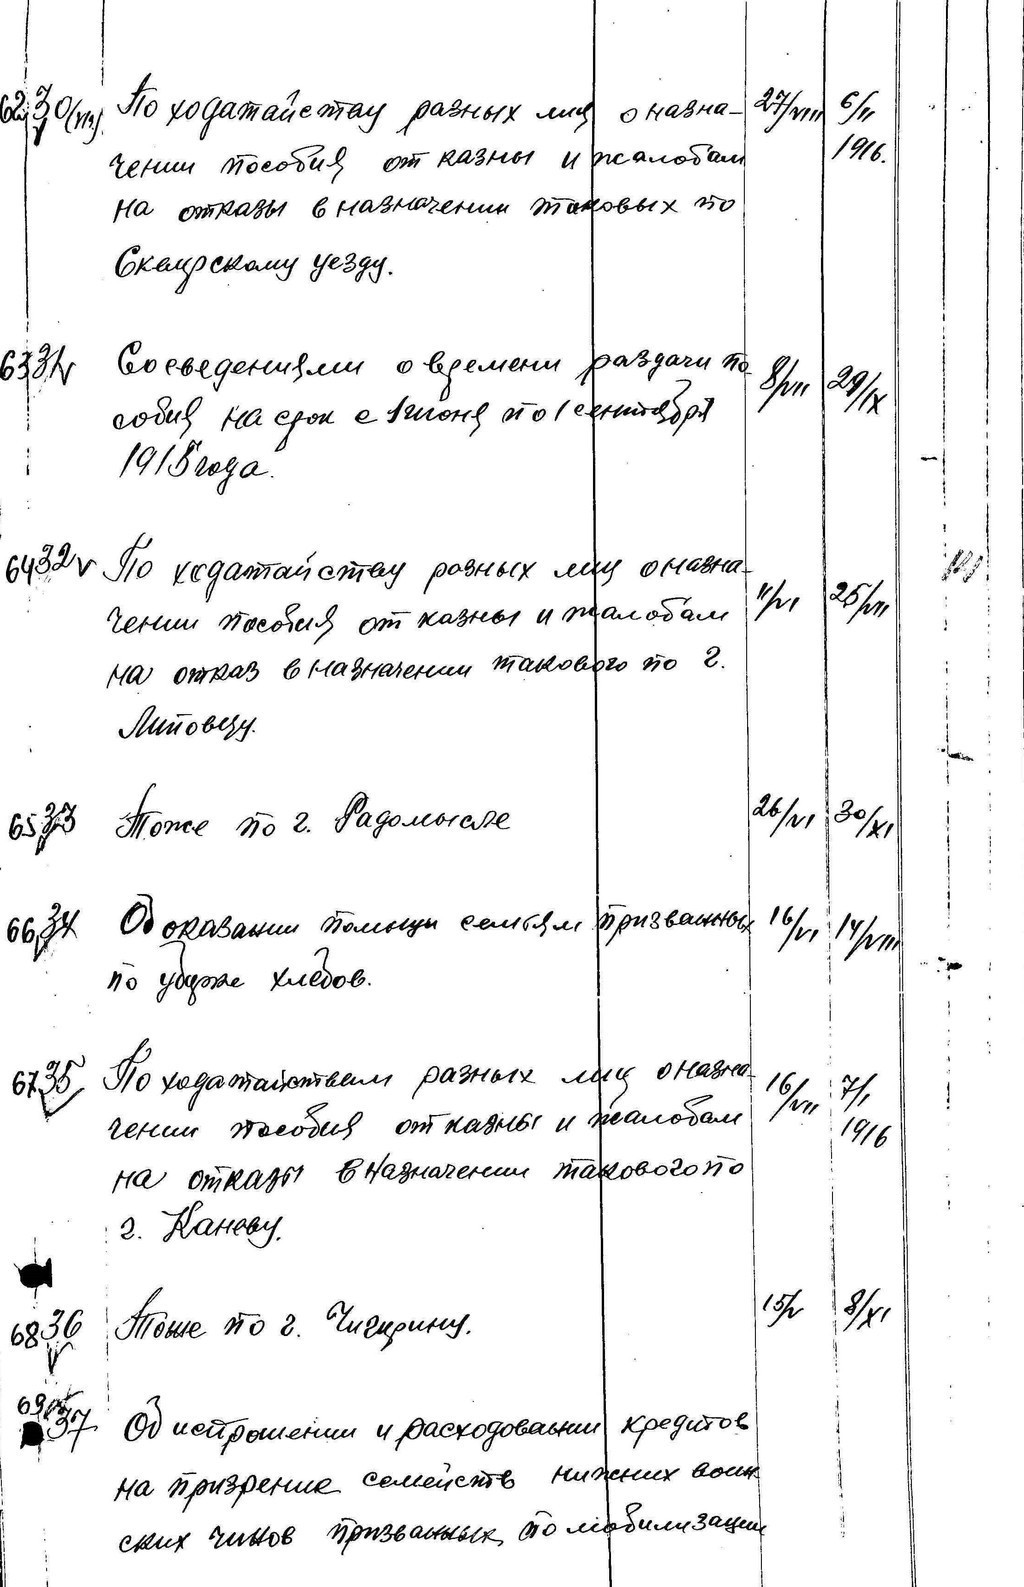 62 30 По ходатайству разных лиц о назна- 27/VIII 6/II
чении пособия от казны и жалобам 1916.
на отказы в назначении таковых по
Сквирскому уезду.
63 31 Со сведениями о времени раздачи по- 8/VII 29/IX
собия на срок с 1 июня по 1 сентября
1915 года.
64 32 По ходатайству разных лиц о назна- 11/VI 25/VII
чении пособия от казны и жалобам
на отказ в назначении такового по г.
Липовцу.
65 33 Тоже по г. Радомысле 26/VI 30/XI
66 34 Об оказании помощи семьям призванных 16/VI 14/VIII
по уборке хлебов.
67 35 По ходатайствам разных лиц о назна- 16/VII 7/I
чении пособия от казны и жалобам 1916
на отказы в назначении такового по
г. Каневу.
68 36 Тоже по г. Чигирину. 15/V 8/XI
69 37 Об испрошении и расходовании кредитов
на призрение семейств нижних воин
ских чинов призванных по мобилизации